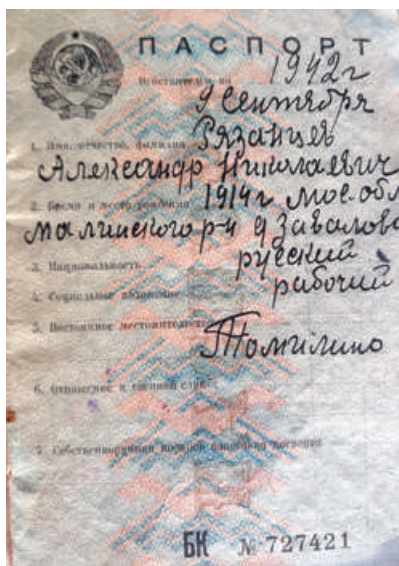 ПАСПОРТ
Действителен по 1942г
9 сентября
1. Имя, отчество, фамилия Рязанцев
Александр Николаевич
2. Время и место рождения 1914г Мос. обл
Малинского р-н д Завалово
3. Национальность русский
4. Социальное положение рабочий
5. Постоянное местожительство
Томилино
6. Отношение к военной службе
7. Собственноручная подпись владельца паспорта
БК № 727421